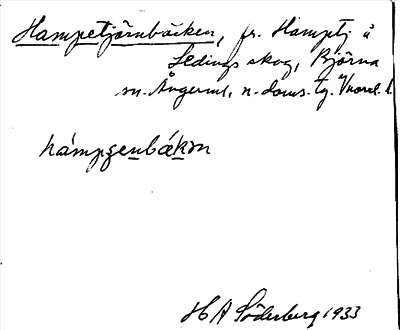 Hampetjärnbäcken, fr. Hamptj å
Ledings skog, Björna
sn. Ångerml. n. doms. tg. Vnorrl. l.
hámpʒenbákən
H A Söderberg 1933